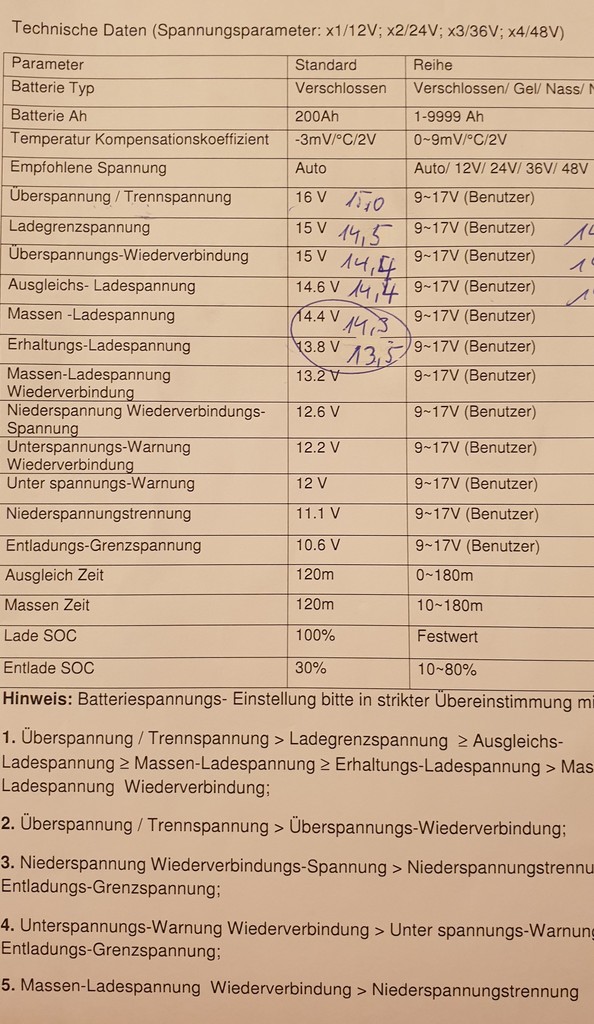 Technische Daten (Spannungsparameter: x1/12V; x2/24V; x3/36V; x4/48V)
Parameter Standard Reihe
Batterie Typ Verschlossen Verschlossen/ Gel/ Nass/
Batterie Ah 200Ah 1-9999 Ah
Temperatur Kompensationskoeffizient -3mV/°C/2V 0~9mV/°C/2V
Empfohlene Spannung Auto Auto/ 12V/ 24V/ 36V/ 48V
Überspannung / Trennspannung 16 V 15,0 9~17V (Benutzer)
Ladegrenzspannung 15 V 14,5 9~17V (Benutzer)
Überspannungs-Wiederverbindung 15 V 14,4 9~17V (Benutzer)
Ausgleichs- Ladespannung 14.6 V 14,4 9~17V (Benutzer)
Massen -Ladespannung 14.4 V 14,3 9~17V (Benutzer)
Erhaltungs-Ladespannung 13.8 V 13,5 9~17V (Benutzer)
Massen-Ladespannung 13.2 V 9~17V (Benutzer)
Wiederverbindung
Niederspannung Wiederverbindungs- 12.6 V 9~17V (Benutzer)
Spannung
Unterspannungs-Warnung 12.2 V 9~17V (Benutzer)
Wiederverbindung
Unter spannungs-Warnung 12 V 9~17V (Benutzer)
Niederspannungstrennung 11.1 V 9~17V (Benutzer)
Entladungs-Grenzspannung 10.6 V 9~17V (Benutzer)
Ausgleich Zeit 120m 0~180m
Massen Zeit 120m 10~180m
Lade SOC 100% Festwert
Entlade SOC 30% 10~80%
Hinweis: Batteriespannungs- Einstellung bitte in strikter Übereinstimmung mi
1. Überspannung / Trennspannung > Ladegrenzspannung ≥ Ausgleichs-
Ladespannung ≥ Massen-Ladespannung ≥ Erhaltungs-Ladespannung > Mas
Ladespannung Wiederverbindung;
2. Überspannung / Trennspannung > Überspannungs-Wiederverbindung;
3. Niederspannung Wiederverbindungs-Spannung > Niederspannungstrennu
Entladungs-Grenzspannung;
4. Unterspannungs-Warnung Wiederverbindung > Unter spannungs-Warnung
Entladungs-Grenzspannung;
5. Massen-Ladespannung Wiederverbindung > Niederspannungstrennung